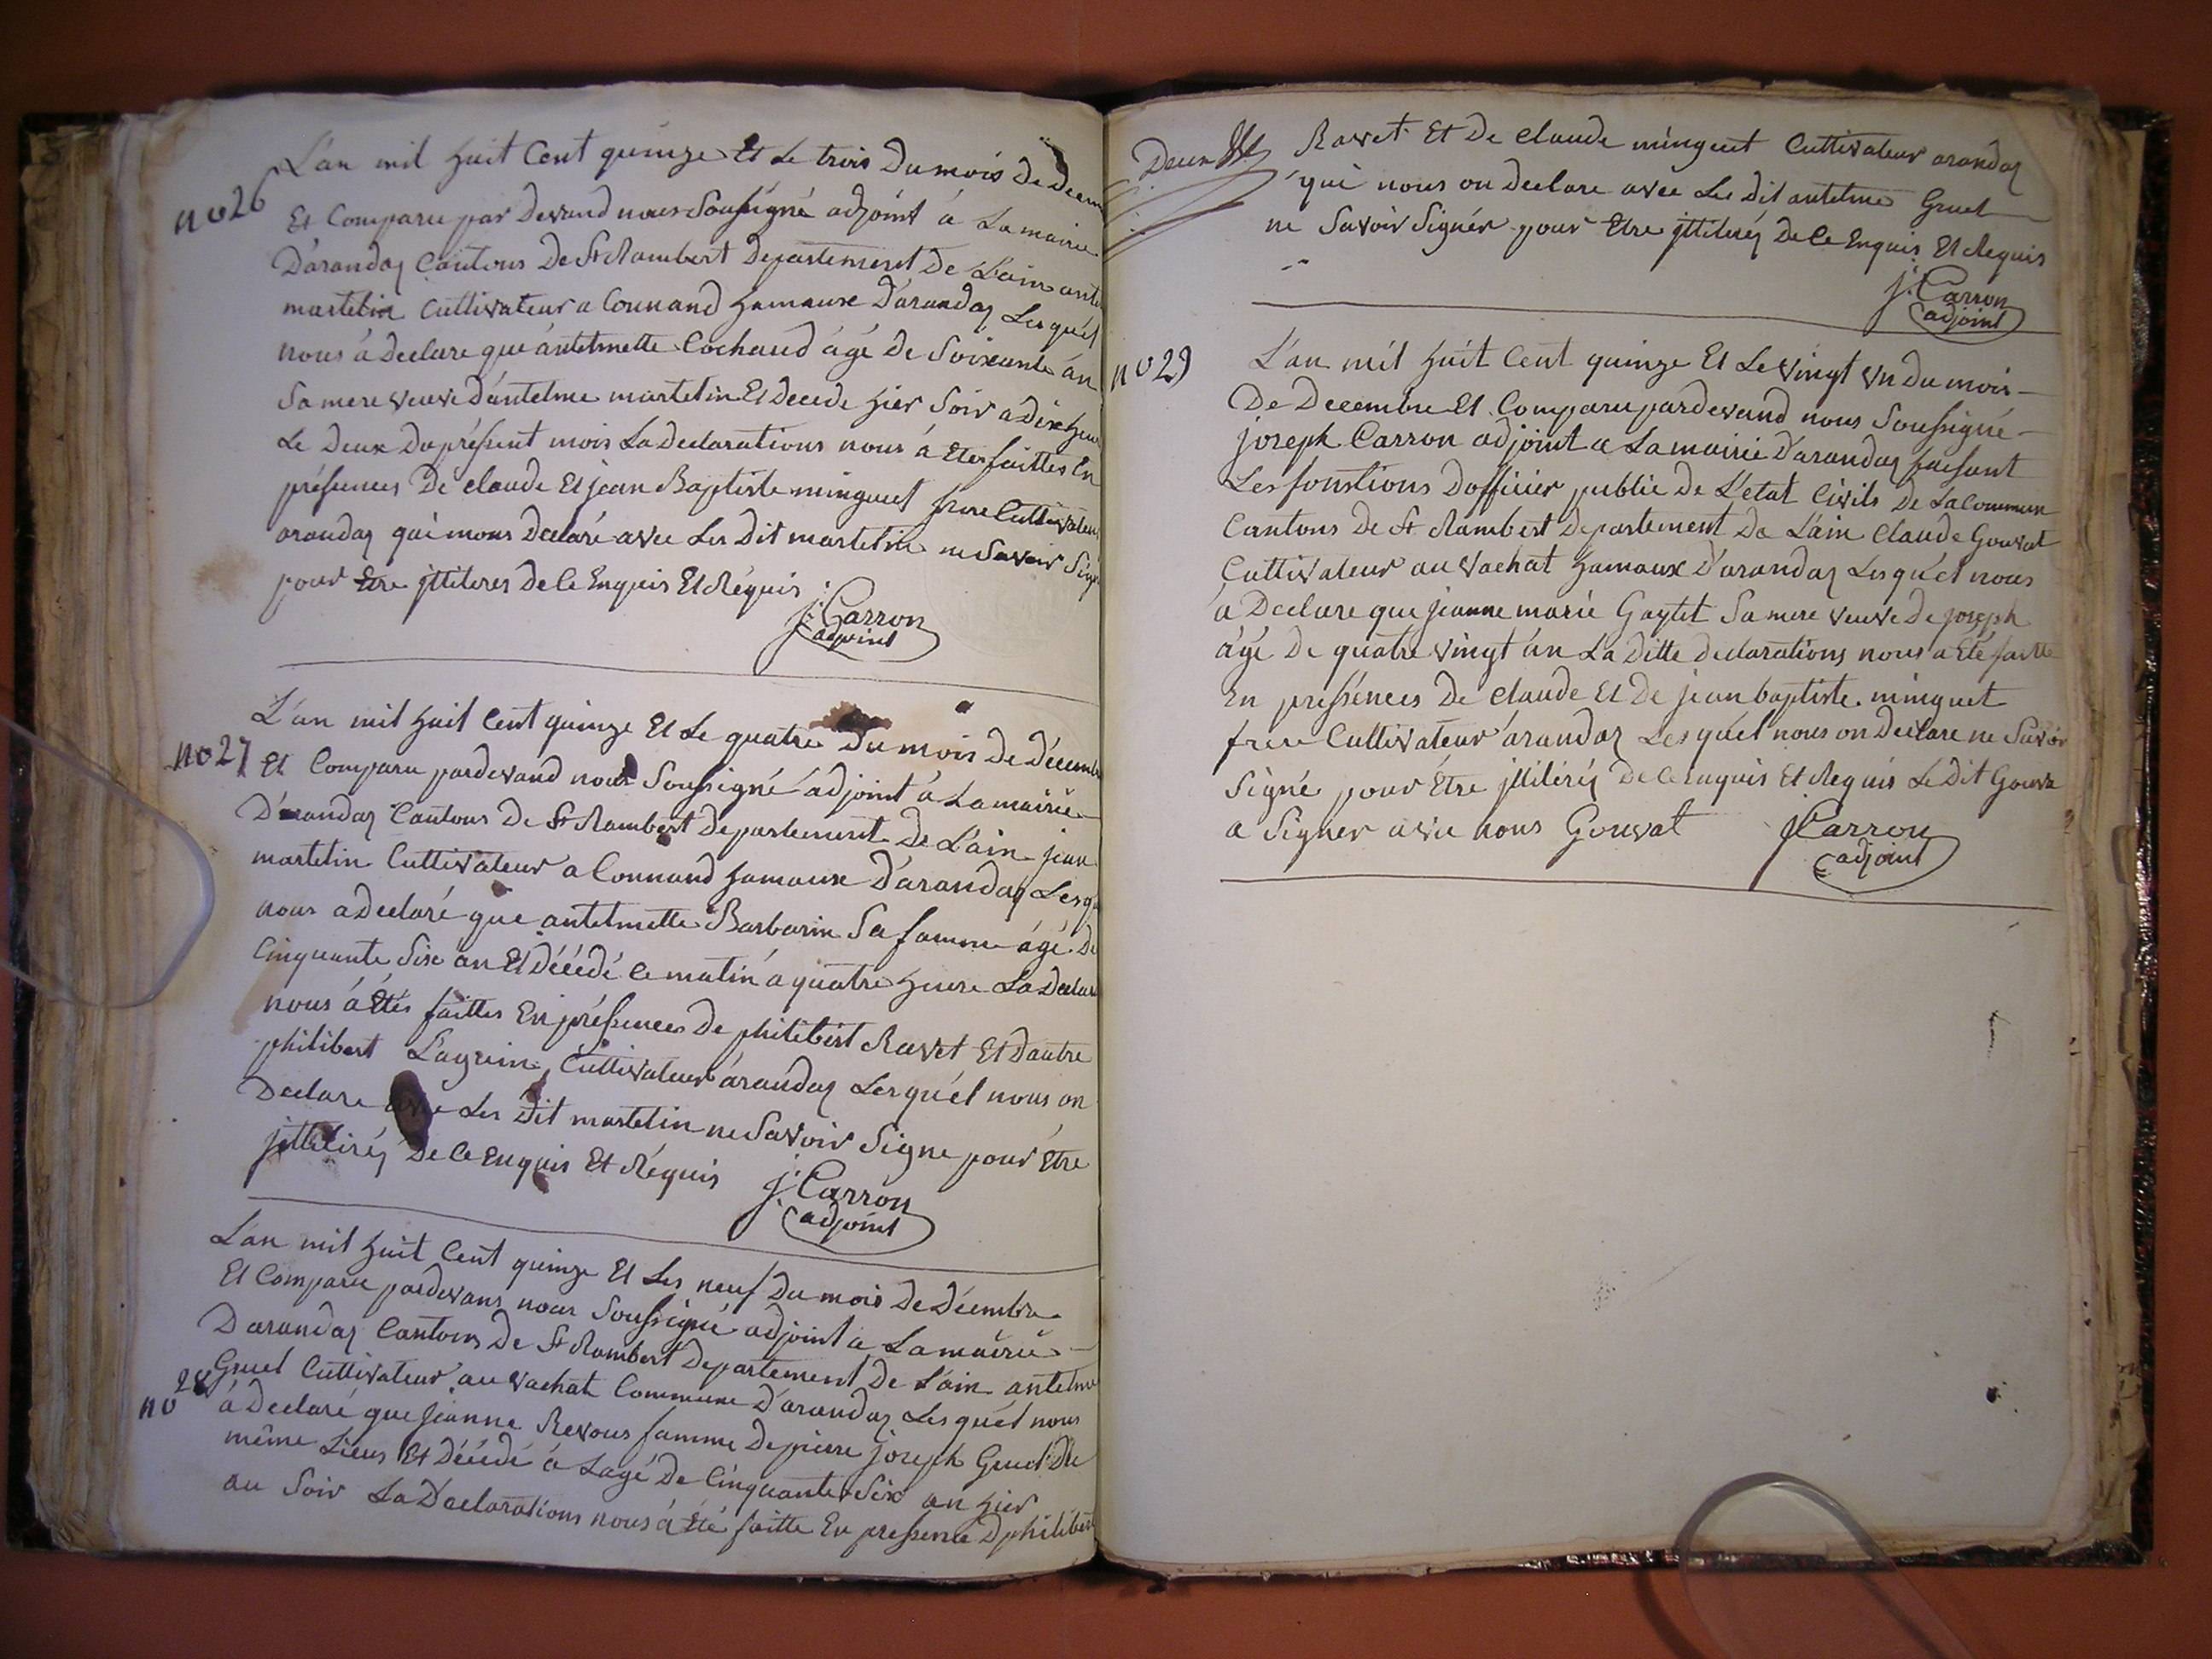 L'an mil huit Cent quinze Et Le trois Du mois De Decem
no 26
Et Comparu par Devand nous Soussigné adjoint à La mairie
D'arandas Cantons De St Rambert Departement De L'ain ante
martelin Cultivateur a Connand hamaux D'arandas Lesquel
nous à Declare que antelmette Cochaud âgé De Soixante an
Sa mere veuve D'antelme martelin Et Decede hier Soir a dix heur
Le Deux Du préssent mois La Declarations nous à Etes faittes En
préssences De Claude Et jean Baptiste minguet frere Cultivateur
arandas qui nous Declaré avec Les Dit martelin ne Savoir Sign
pour Etre jttileres De Ce Enquis Et Réquis
j. Carron
adjoint
L'an mil huit Cent quinze Et Le quatre Du mois De Décemb
no 27
Et Comparu pardevand nous Soussigné adjoint à La mairie
D'arandas Cantons De St Rambert Departement De L'ain jean
martelin Cultivateur a Connand hamaux D'arandas Lesqu
nous a declaré que antelmette Barbarin Sa famme âgé De
Cinquante Six an Et Décédé Ce matin a quatre heure La Declar
nous à Etés faittes En préssences De philibert Ravet Et D'autre
philibert Laguin Cultivateur arandas Lesquel nous on
Declare avec Les Dit martelin ne Savoir Signe pour Etre
jttilirés De Ce Enquis Et Réquis
j. Carron
adjoint
L'an mil huit Cent quinze Et Les neuf Du mois De Décembre
Et Comparu pardevant nous Soussigné adjoint a La mairie
D'arandas Cantons De St Rambert Departement De L'ain antelme
Gruel Cultivateur au vachat Commune D'arandas Lesquel nous
no 28
à Declaré que jeanne Revous famme De pierre joseph Gruel Du
même Lieux Et Décédé a Lagé De Cinquante Six an hier
au Soir La Declarations nous à Eté faitte En pressence D philibert
Deux
Ravet Et De Claude minguet Cultivateur arandas
qui nous on Declare avec Les Dit antelme Gruel
ne Savoir Signér pour Etre jttilirés De Ce Enquis Et Requis
j. Carron
adjoint
no 29
L'an mil huit Cent quinze Et Le vingt un du mois
De Decembre Et Comparu pardevand nous Soussigné
joseph Carron adjoint a La mairie D'arandas faisant
Les fonstions Dofficier public De L'etat Civils De La Commun
Cantons De St Rambert Departement De L'ain Claude Gouvat
Cultivateur au vachat hamaux D'arandas Lesquel nous
à Declare que jeanne marie Gaytet Sa mere veuve De joseph
âgé De quatre vingt an La Ditte declarations nous a Eté faitte
En pressences De Claude Et De jean baptiste minguet
frere Cultivateur arandas Lesquel nous on Declare ne Savoir
Signé pour Etre jttilirés De Ce Enquis Et Requis Le Dit Gouva
a Signer avec nous Gouvat
j Carron
adjoint